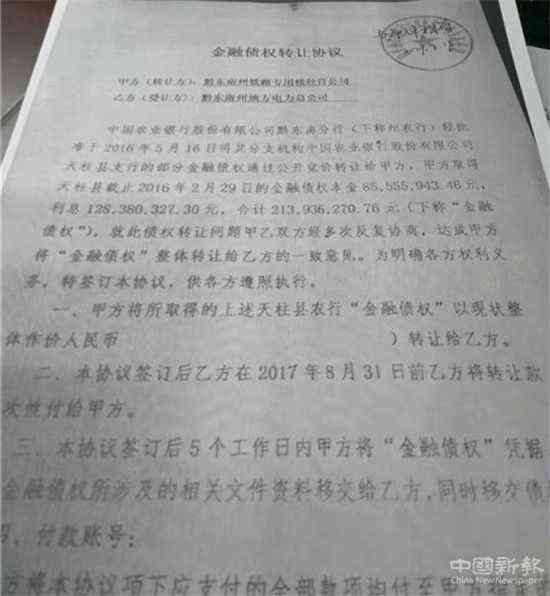 金融债权转让协议
甲方（转让方）：黔东南州
乙方（受让方）：黔东南州地方电力总公司
中国农业银行股份有限公司黔东南分行（下称州农行）经批
准于2016年5月16日将其分支机构中国农业银行股份有限公司
天柱县支行的部分金融债权通过公开竞价转让给甲方，甲方取得
天柱县截止2016年2月29日的金融债权本金85,555,943.46元，
利息128,380,327.30元，合计213,936,270.76元（下称“金融
债权”）。就此债权转让问题甲乙双方经多次反复协商，达成甲方
将“金融债权”整体转让给乙方的一致意见。为明确各方权利义
务，特签订本协议，供各方遵照执行。
一、甲方将所取得的上述天柱县农行“金融债权”以现状整
体作价人民币 ）转让给乙方。
二、本协议签订后乙方在2017年8月31日前乙方将转让款
次性付给甲方。
三、本协议签订后5个工作日内甲方将“金融债权”凭据
金融债权所涉及的相关文件资料移交给乙方，同时移交债
四、付款账号：
方将本协议项下应支付的全部款项均付至甲方
中國新報
China New Newspaper